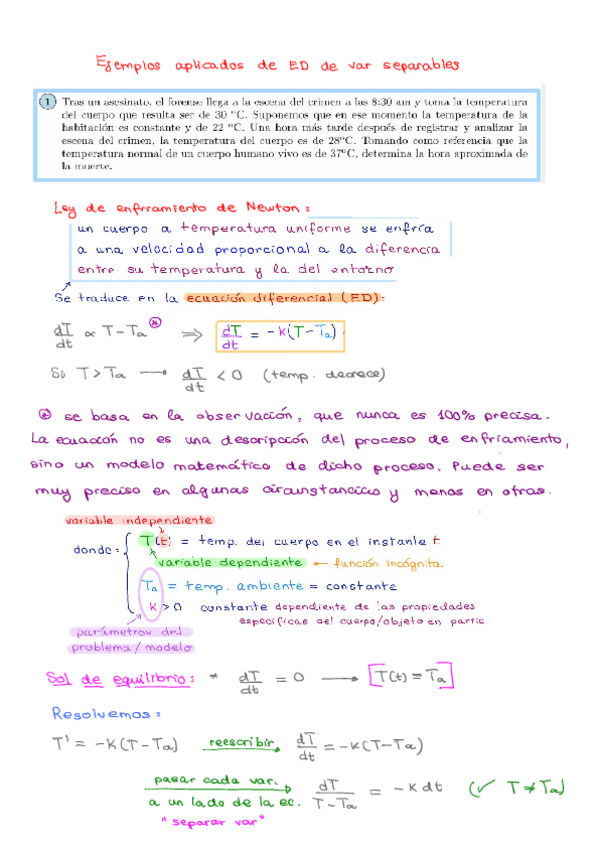 Ejemplos aplicados de ED de var separables
1 Tras un asesinato, el forense llega a la escena del crimen a las 8:30 am y toma la temperatura
del cuerpo que resulta ser de 30 ºC. Suponemos que en ese momento la temperatura de la
habitación es constante y de 22 ºC. Una hora más tarde después de registrar y analizar la
escena del crimen, la temperatura del cuerpo es de 28ºC. Tomando como referencia que la
temperatura normal de un cuerpo humano vivo es de 37ºC, determina la hora aproximada de
la muerte.
Ley de enfrramiento de Newton:
un cuerpo a temperatura uniforme se enfría
a una velocidad proporcional a la diferencia
entre su temperatura y la del entorno
Se traduce en la ecuación diferencial (ED):
dT/dt ∝ T-Ta ⊛ ⇒ dT/dt = -K(T-Ta)
Si T>Ta → dT/dt < 0 (temp. decrece)
⊛ se basa en la observación, que nunca es 100% precisa.
La ecuación no es una descripción del proceso de enfriamiento,
sino un modelo matemático de dicho proceso. Puede ser
muy preciso en algunas circunstancias y menos en otras.
variable independiente
donde: T(t) = temp. del cuerpo en el instante t
variable dependiente ← función incógnita
Ta = temp. ambiente = constante
K>0 constante dependiente de las propiedades
específicas del cuerpo/objeto en partic.
parámetros del
problema/modelo
Sol de equilibrio: * dT/dt = 0 → [T(t) = Ta]
Resolvemos:
T' = -K(T-Ta) reescribir dT/dt = -K(T-Ta)
pasar cada var. a un lado de la ec. dT/T-Ta = -K dt (✓ T≠Ta)
"separar var"